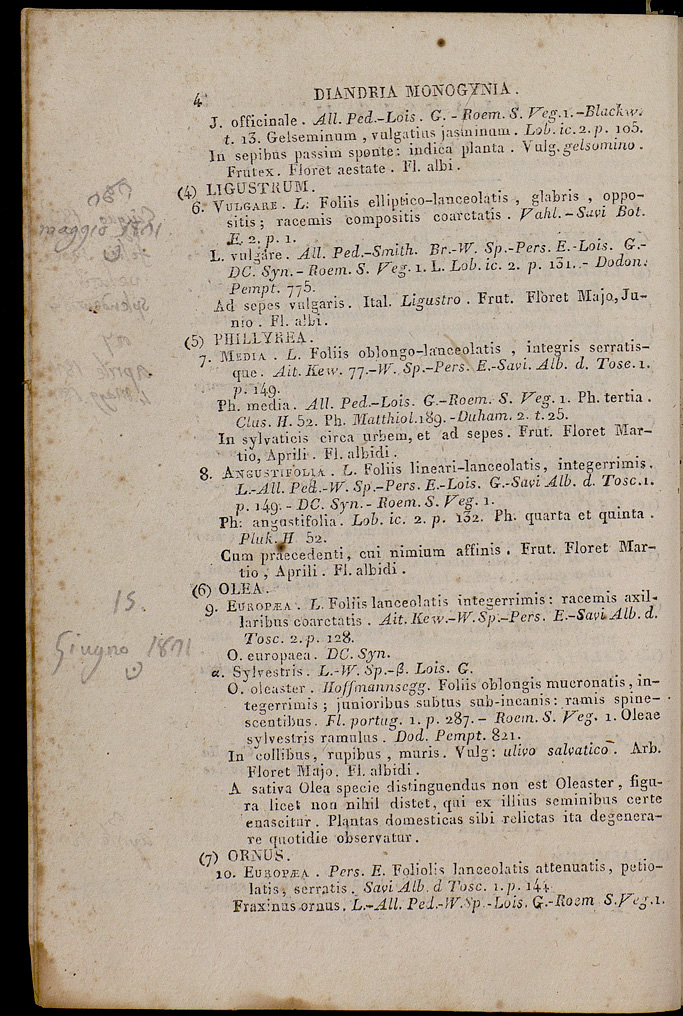 4
DIANDRIA MONOGYNIA.
J. officinale. All. Ped.-Lois. G.-Roem. S. Veg.1.-Blackw.
t. 13. Gelseminum, vulgatius jasminum. Lob. ic. 2. p. 105.
In sepibus passim sponte: indica planta. Vulg. gelsomino.
Frutex. Floret aestate. Fl. albi.
(4) LIGUSTRUM.
6. VULGARE. L. Foliis elliptico-lanceolatis, glabris, oppo-
sitis; racemis compositis coarctatis. Vahl.-Savi Bot.
E. 2. p. 1.
L. vulgare. All. Ped.-Smith. Br.-W. Sp.-Pers. E.-Lois. G.-
DC. Syn.-Roem. S. Veg. 1. L. Lob. ic. 2. p. 131.-Dodon.
Pempt. 775.
Ad sepes vulgaris. Ital. Ligustro. Frut. Floret Majo, Ju-
nio. Fl. albi.
(5) PHILLYREA.
7. MEDIA. L. Foliis oblongo-lanceolatis, integris serratis-
que. Ait. Kew. 77.-W. Sp.-Pers. E.-Savi. Alb. d. Tosc. 1.
p. 149.
Ph. media. All. Ped.-Lois. G.-Roem. S. Veg. 1. Ph. tertia.
Clus. H. 52. Ph. Matthiol. 189.-Duham. 2. t. 25.
In sylvaticis circa urbem, et ad sepes. Frut. Floret Mar-
tio, Aprili. Fl. albidi.
8. ANGUSTIFOLIA. L. Foliis lineari-lanceolatis, integerrimis.
L.-All. Ped.-W. Sp.-Pers. E.-Lois. G.-Savi Alb. d. Tosc. 1.
p. 149.-DC. Syn.-Roem. S. Veg. 1.
Ph. angustifolia. Lob. ic. 2. p. 132. Ph. quarta et quinta.
Pluk. H 52.
Cum praecedenti, cui nimium affinis. Frut. Floret Mar-
tio, Aprili. Fl. albidi.
(6) OLEA.
9. EUROPÆA. L. Foliis lanceolatis integerrimis: racemis axil-
laribus coarctatis. Ait. Kew.-W. Sp.-Pers. E.-Savi Alb. d.
Tosc. 2. p. 128.
O. europaea. DC. Syn.
α. Sylvestris. L.-W. Sp.-β. Lois. G.
O. oleaster. Hoffmannsegg. Foliis oblongis mucronatis, in-
tegerrimis; junioribus subtus sub-incanis: ramis spine-
scentibus. Fl. portug. 1. p. 287.-Roem. S. Veg. 1. Oleae
sylvestris ramulus. Dod. Pempt. 821.
In collibus, rupibus, muris. Vulg: ulivo salvatico. Arb.
Floret Majo. Fl. albidi.
A sativa Olea specie distinguendus non est Oleaster, figu-
ra licet non nihil distet, qui ex illius seminibus certe
enascitur. Plantas domesticas sibi relictas ita degenera-
re quotidie observatur.
(7) ORNUS.
10. EUROPÆA. Pers. E. Foliolis lanceolatis attenuatis, petio-
latis, serratis. Savi Alb. d Tosc. 1. p. 144
Fraxinus ornus. L.-All. Ped.-W. Sp.-Lois. G.-Roem S. Veg. 1.
15.
Giugno 1871